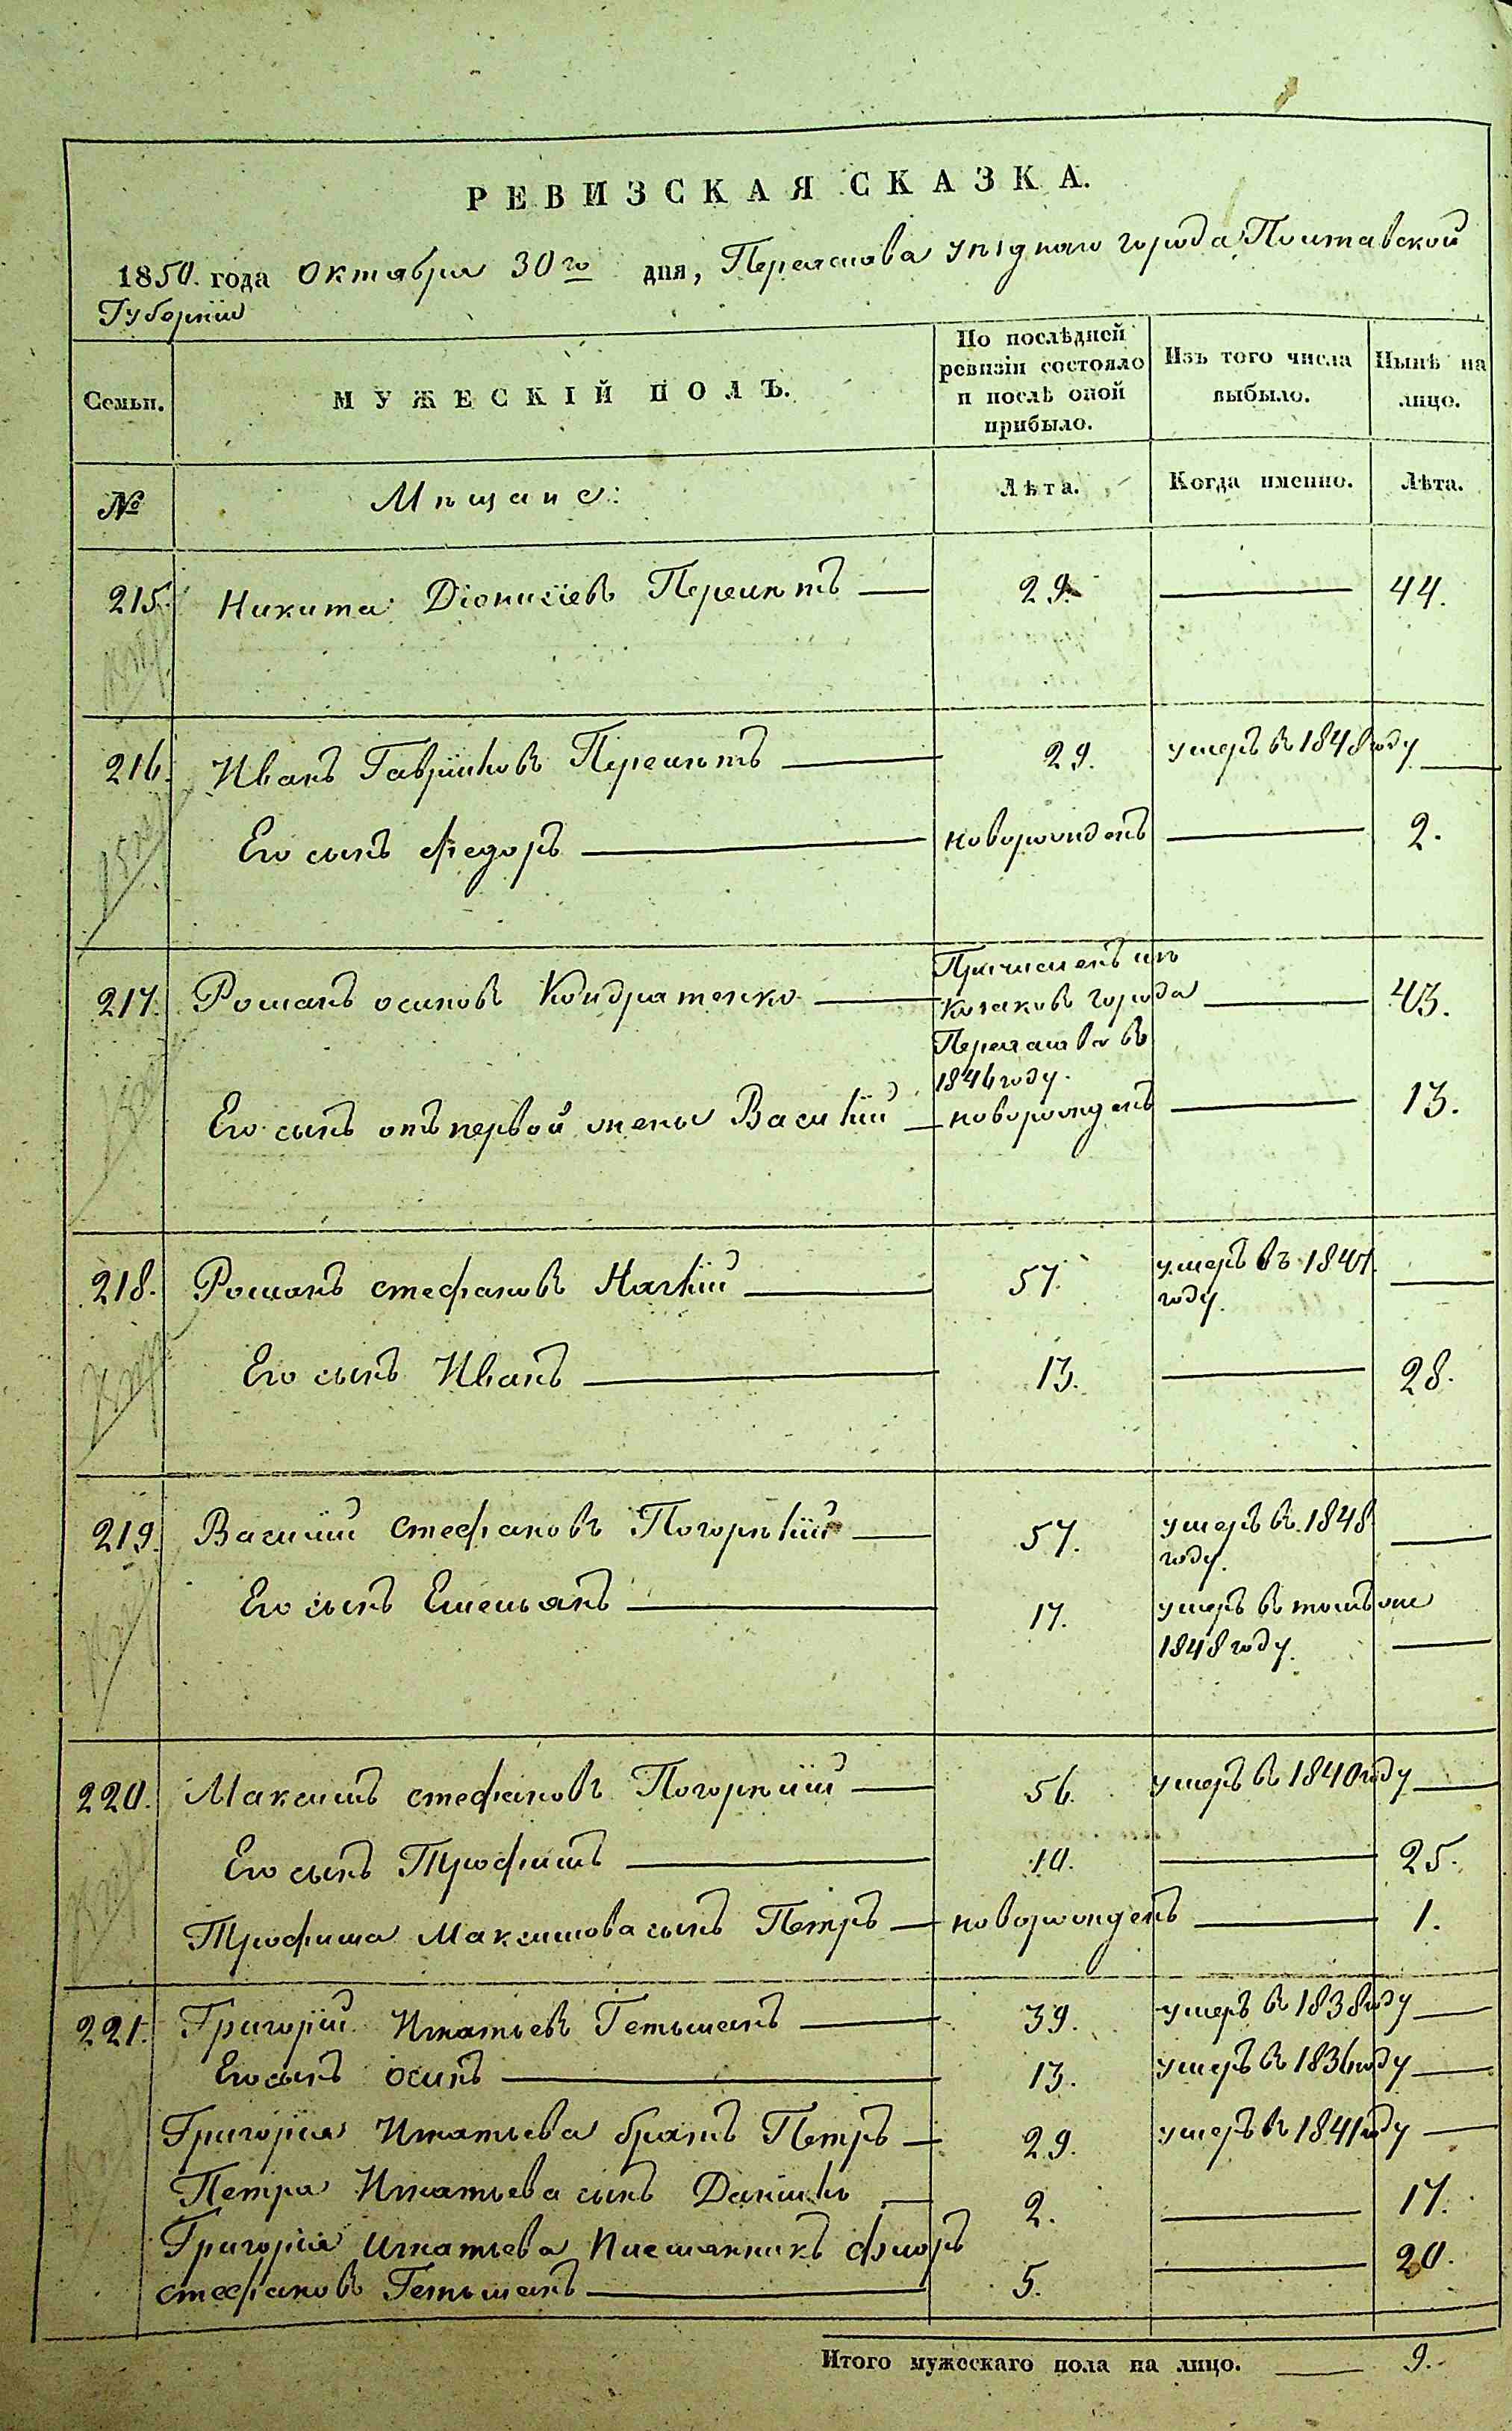 РЕВИЗСКАЯ СКАЗКА.
1850. года Октября 30го дня, Переяслова уѣзднаго города Полтавской
Губерніи
Семьи.
МУЖЕСКІЙ ПОЛЪ.
По послѣдней ревизіи состояло и послѣ оной прибыло.
Изъ того числа выбыло.
Нынѣ на лицо.
№
Мѣщане:
Лѣта.
Когда именно.
Лѣта.
215. Никита Діонисіевъ — 29. — 44.
216. Иванъ Гавриловъ — 29. умеръ въ 1848 году —
Его сынъ Федоръ — новорожденъ — 2.
217. Романъ Осиповъ Кондратенко — Причисленъ изъ
Козаковъ города — 43.
Переяслова въ
1846 году.
Его сынъ отъ первой жены Василій — новорожденъ — 13.
218. Романъ Стефановъ — 57. умеръ въ 1847 —
году.
Его сынъ Иванъ — 13. — 28.
219. Василій Стефановъ Погорѣлій — 57. умеръ въ 1848 —
году.
Его сынъ Емельянъ — 17. умеръ въ томъ же
1848 году. —
220. Максимъ Стефановъ Погорѣлій — 56. умеръ въ 1840 году —
Его сынъ Трофимъ — 10. — 25.
Трофима Максимова сынъ Петръ — новорожденъ — 1.
221. Григорій Игнатьевъ Гетьманъ — 39. умеръ въ 1838 году —
Его сынъ Осипъ — 13. умеръ въ 1836 году —
Григорія Игнатьева братъ Петръ — 29. умеръ въ 1841 году —
Петра Игнатьева сынъ Данило — 2. — 17.
Григорія Игнатьева племянникъ Флоръ
Стефановъ Гетьманъ — 5. — 20.
Итого мужескаго пола на лицо. — 9.